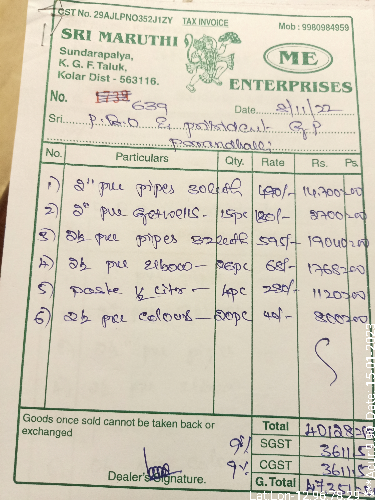 GST No. 29AJLPNO352J1ZY TAX INVOICE Mob : 9980984959
SRI MARUTHI
Sundarapalya,
K. G. F. Taluk,
Kolar Dist - 563116.
ME
ENTERPRISES
No. 1739 639 Date 2/11/22
Sri P.D.O & president GP
No. Particulars Qty. Rate Rs. Ps.
1) 2" pvc pipes 30 490/- 14700=00
2) 2" pvc 15pc 180/- 2700=00
3) 2½ pvc pipes 32 595/- 19040=00
4) 2½ pvc elbow - 26pc 68/- 1768=00
5) paste ½ liter - 4pc 280/- 1120=00
6) 2½ pvc - 20pc 40/- 800=00
Goods once sold cannot be taken back or
exchanged
Total 40128=00
9% SGST 3611.5
9% CGST 3611.5
Dealer's Signature. G. Total